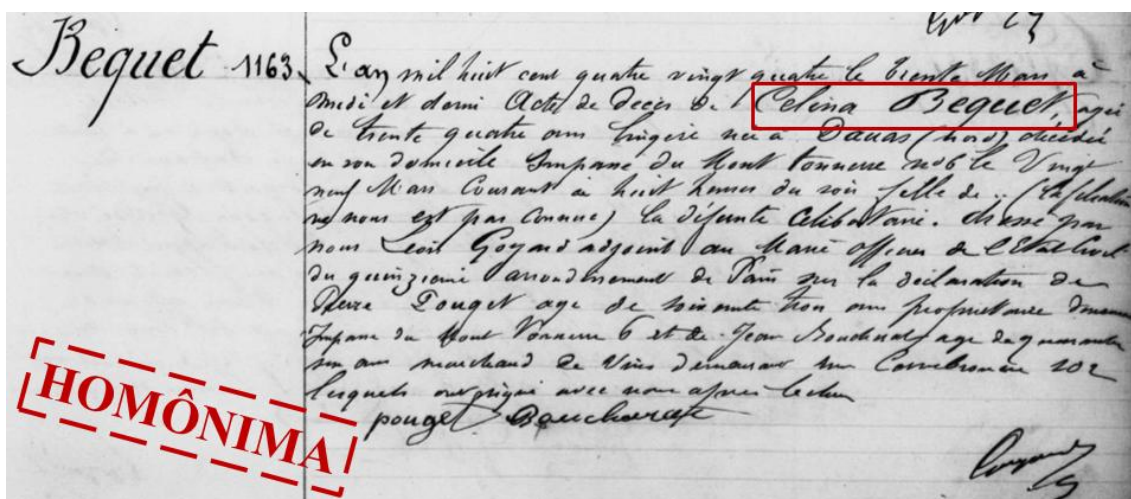 Bequet 1163
L'an mil huit cent quatre vingt quatre le trente Mars à
midi et demi Acte de décès de Celina Bequet, agée
de trente quatre ans lingère née à (nord) décédée
en son domicile Impasse du Mont tonnerre no 6 le Vingt
neuf Mars Courant à huit heures du soir fille de .. (la filiation
ne nous est pas connue) la défunte Célibataire. Dressé par
nous Léon Goyard adjoint au Maire officier de l'Etat Civil
du quinzième arrondissement de Paris sur la déclaration de
Pierre Pouget agé de soixante trois ans propriétaire
Impasse du Mont Tonnerre 6 et de Jean agé de quarante
ans marchand de Vins demeurant 202
lesquels ont signé avec nous après lecture
pouget
HOMÔNIMA